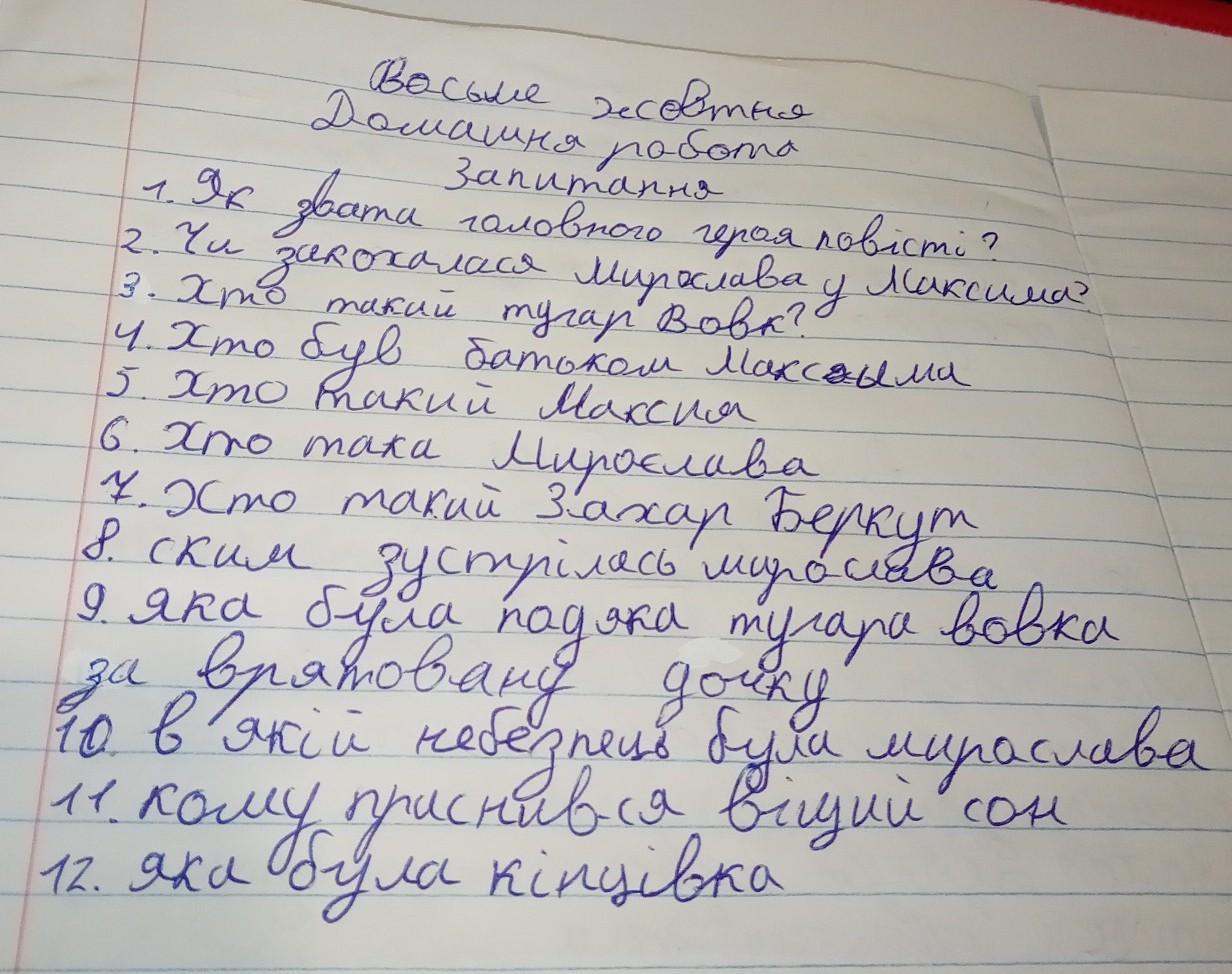 Восьме жовтня
Домашня робота
Запитання
1. Як звати головного героя повісті?
2. Чи закохалася Мирослава у Максима?
3. Хто такий тугар Вовк?
4. Хто був батьком Максыма
5. Хто такий Максим
6. Хто така Мирослава
7. Хто такий Захар Беркут
8. ским зустрілась мирослава
9. яка була подяка тугара вовка
за врятовану дочку
10. в якій небезпець була мирослава
11. кому приснився віщий сон
12. яка була кінцівка